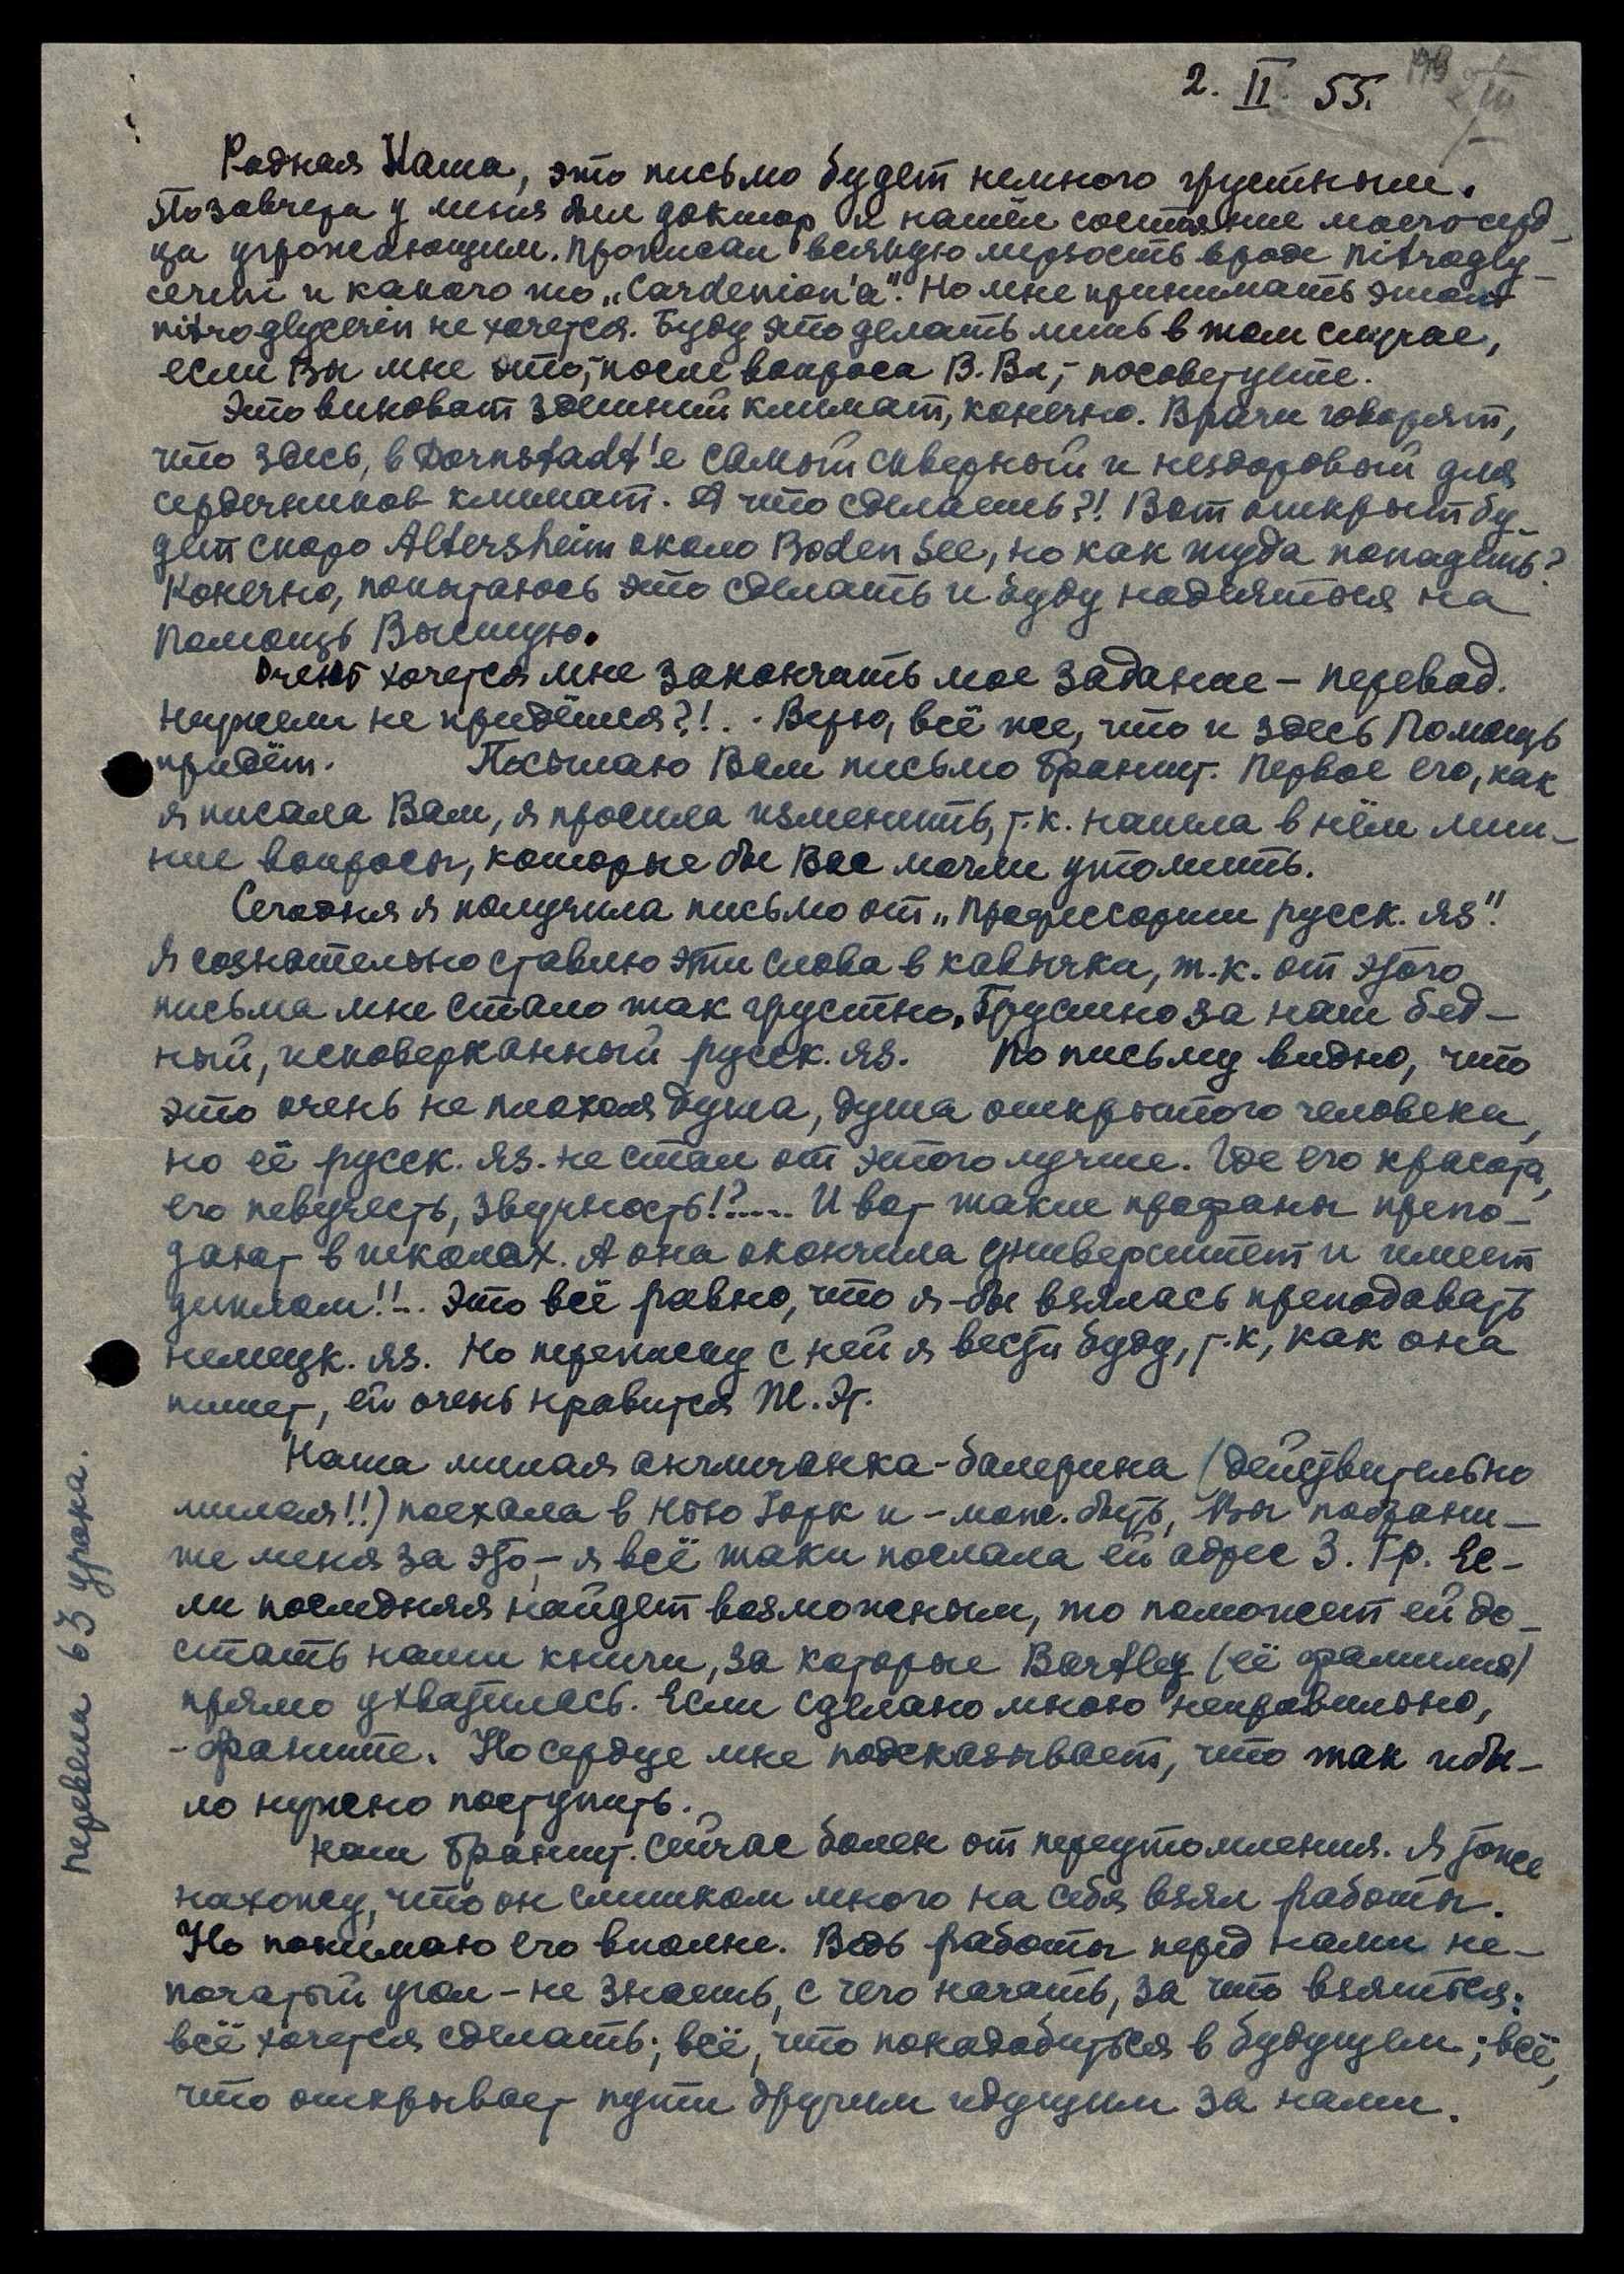 2. II. 55.
Родная Наша, это письмо будет немного грустным.
Позавчера у меня был доктор и нашёл состояние моего серд-
ца угрожающим. Прописал всякую мерзость вроде nitrogly-
cerini и какого то „Cardenion'a". Но мне принимать этот
nitroglycerin не хочется. Буду это делать лишь в том случае,
если Вы мне это,- после вопроса В.Вл,- посоветуете.
Это виноват здешний климат, конечно. Врачи говорят,
что здесь, в Dornstadt'е самый скверный и нездоровый для
сердечников климат. А что сделаешь?! Вот открыт бу-
дет скоро Altersheim около Boden See, но как туда попадёшь?
Конечно, попытаюсь это сделать и буду надеяться на
Помощь Высшую.
Очень хочется мне закончить мое задание – перевод.
Неужели не придётся?!.. Верю, всё же, что и здесь Помощь
придёт. Посылаю Вам письмо Гранит. Первое его, как
я писала Вам, я просила изменить, т.к. нашла в нём лиш-
ние вопросы, которые бы Вас могли утомить.
Сегодня я получила письмо от „профессорши русск. яз".
Я сознательно ставлю эти слова в кавычки, т.к. от этого
письма мне стало так грустно. Грустно за наш бед-
ный, исковерканный русск. яз. По письму видно, что
это очень не плохая душа, душа открытого человека,
но её русск. яз. не стал от этого лучше. Где его красота,
его певучесть, звучность!?.... И вот такие профаны препо-
дают в школах. А она окончила университет и имеет
диплом!!.. Это всё равно, что я-бы взялась преподавать
немецк. яз. Но переписку с ней я вести буду, т.к, как она
пишет, ей очень нравится Ж.Эт.
Наша милая англичанка-балерина (действительно
милая!!) поехала в Нью Йорк и - мож. быть, Вы пожури-
же меня за это,- я всё таки послала ей адрес З. Гр. Ес-
ли последняя найдет возможным, то поможет ей до-
стать наши книги, за которые Bartley (её фамилия)
прямо ухватилась. Если сделано мною неправильно,
- браните. Но сердце мне подсказывает, что так и бы-
ло нужно поступить.
Наш Гранит. сейчас болен от переутомления. Я тоже
нахожу, что он слишком много на себя взял работы.
Но понимаю его вполне. Ведь работы перед нами не-
початый угол - не знаешь, с чего начать, за что взяться:
всё хочется сделать; всё, что понадобиться в будущем; всё,
что открывает пути другим идущим за нами.
перевела 63 урока.